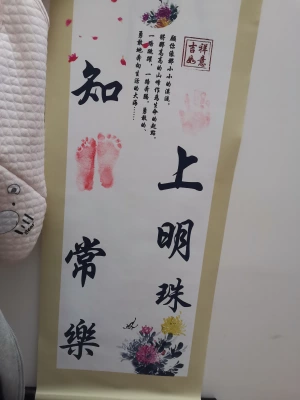 吉祥
如意
願你像那小小的溪流，
將那高高的山峰作為生命的起點，
一路跳躍，一路奔騰，勇敢的，
勇敢地奔向生活的大海……
上明珠
知常樂